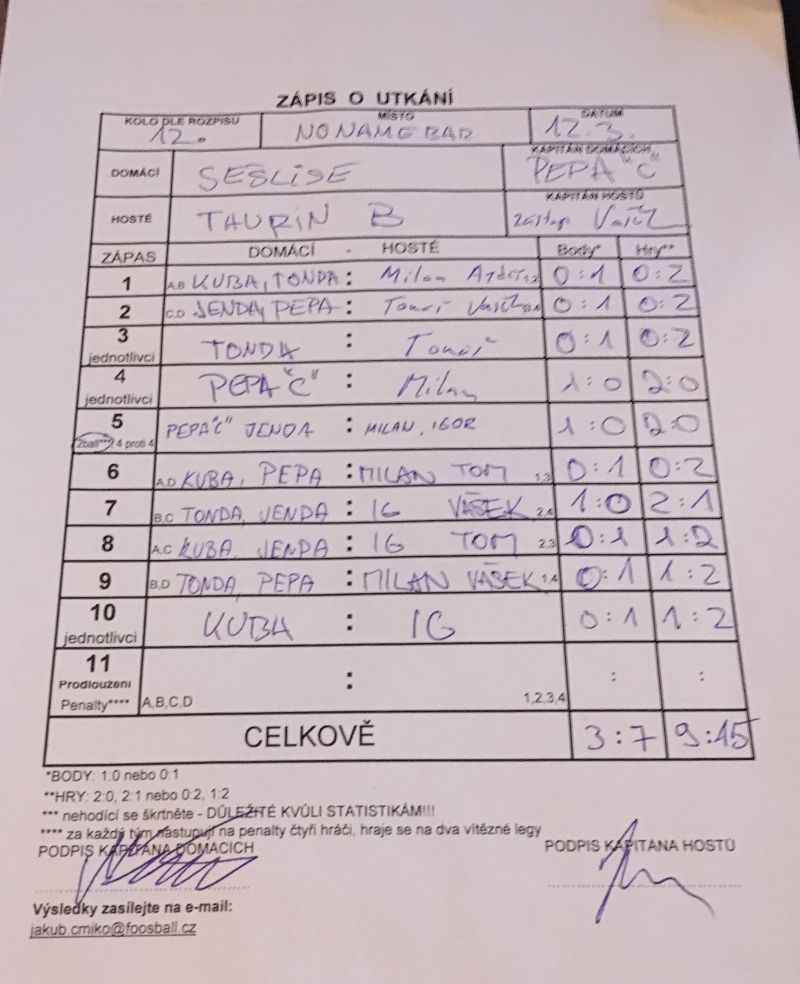 ZÁPIS O UTKÁNÍ
KOLO DLE ROZPISU MÍSTO DATUM
12. NONAMEBAR 12.3.
DOMÁCÍ SEŠLISE KAPITÁN DOMÁCÍCH PEPA "C"
HOSTÉ TAURIN B KAPITÁN HOSTŮ zástup
ZÁPAS DOMÁCÍ - HOSTÉ Body* Hry**
1 A,B KUBA, TONDA : Milan 0:1 0:2
2 C,D JENDA, PEPA : Tomáš 0:1 0:2
3 jednotlivci TONDA : Tomáš 0:1 0:2
4 jednotlivci PEPA "C" : Milan 1:0 2:0
5 2ball***/ 4 proti 4 PEPA "C" JENDA : MILAN, IGOR 1:0 2:0
6 A,D KUBA, PEPA : MILAN TOM 1,3 0:1 0:2
7 B,C TONDA, JENDA : IG VAŠEK 2,4 1:0 2:1
8 A,C KUBA, JENDA : IG TOM 2,3 0:1 1:2
9 B,D TONDA, PEPA : MILAN VAŠEK 1,4 0:1 1:2
10 jednotlivci KUBA : IG 0:1 1:2
11 Prodloužení : : :
Penalty**** A,B,C,D 1,2,3,4
CELKOVĚ 3:7 9:15
*BODY: 1:0 nebo 0:1
**HRY: 2:0, 2:1 nebo 0:2, 1:2
*** nehodící se škrtněte - DŮLEŽITÉ KVŮLI STATISTIKÁM!!!
**** za každý tým nastupují na penalty čtyři hráči, hraje se na dva vítězné legy
PODPIS KAPITÁNA DOMÁCÍCH PODPIS KAPITÁNA HOSTŮ
Výsledky zasílejte na e-mail:
jakub.cmiko@foosball.cz